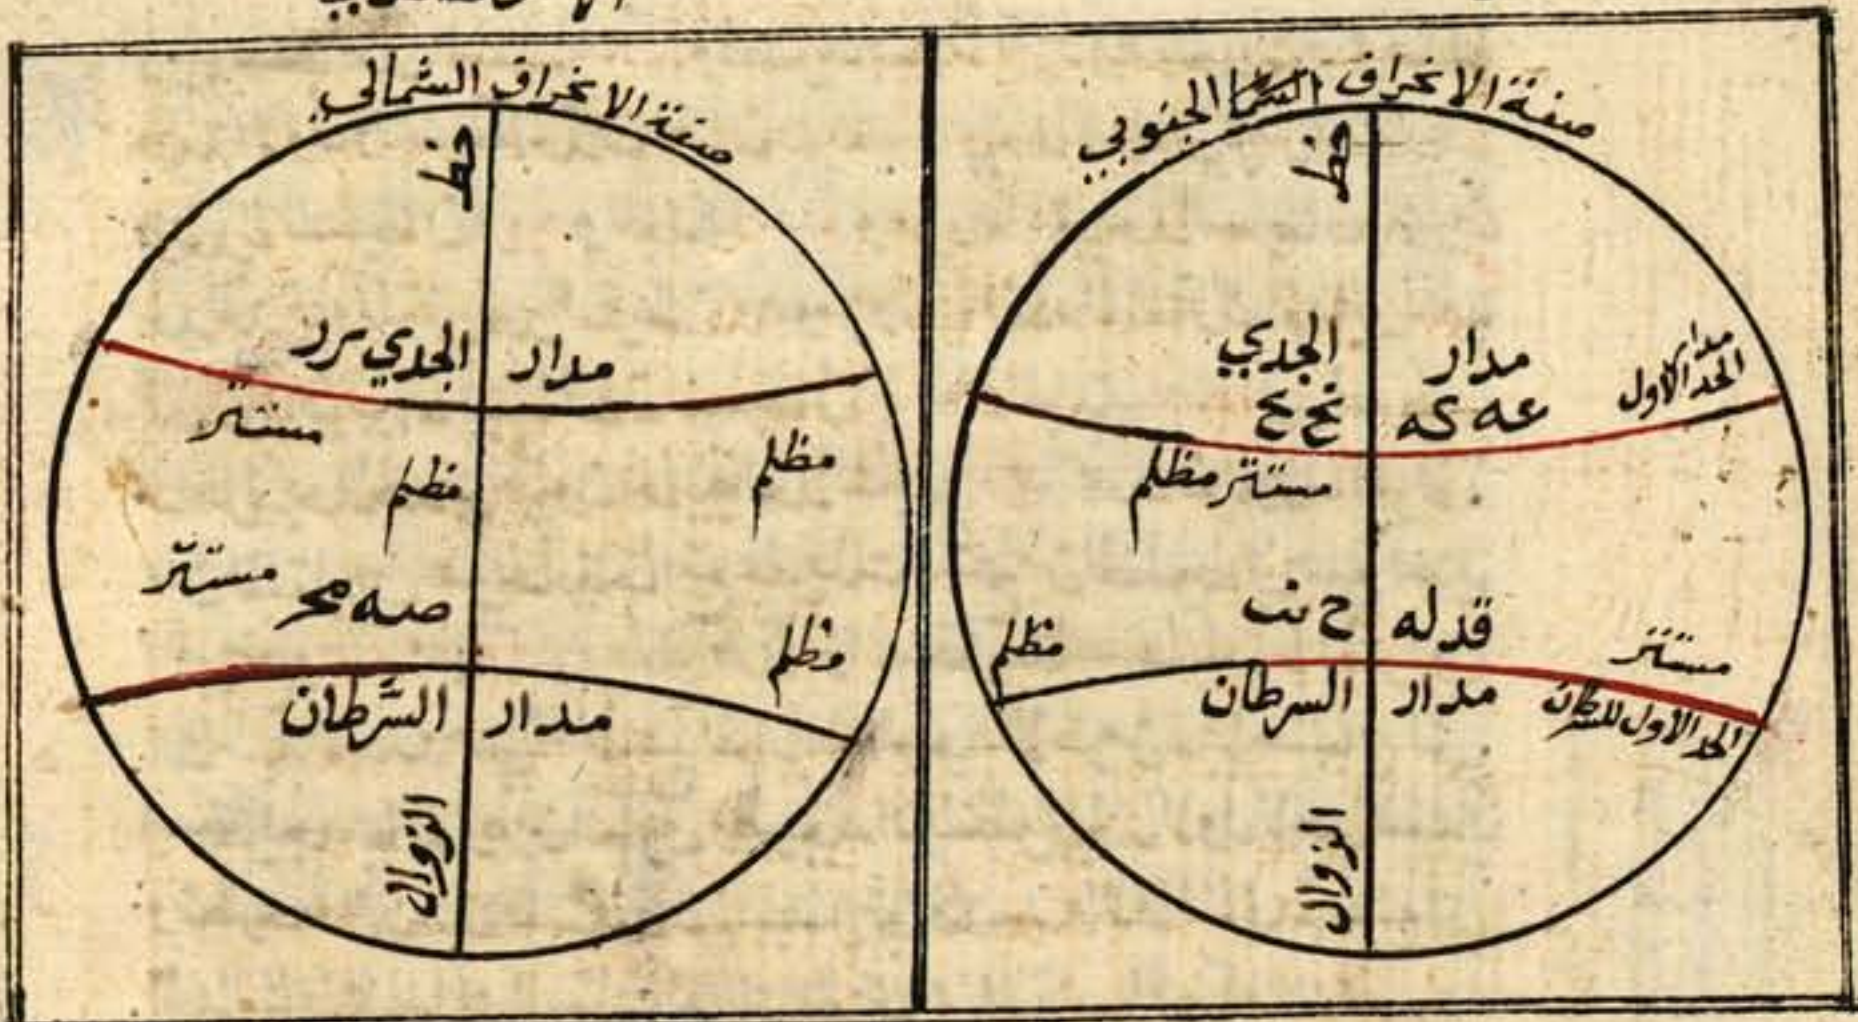 صفة الانحراف الشما الجنوبي
خط
مدار الجدي
مدار الحد الاول
عه كه نح ع
مستتر مظلم
قد له ح نت
مستتر
مظلم
مدار السرطان
الحد الاول للسرطان
الزوال
صفة الانحراف الشمالي
خط
مدار الجدي
مستتر
مظلم
مظلم
مستتر
صه مح
مظلم
مدار السَّرطان
الزوال